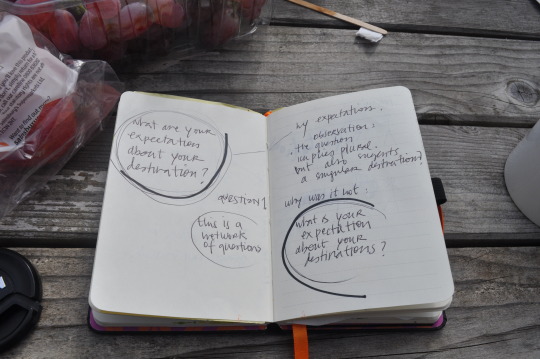 what are your
expectation
about your
destination?
question 1
this is a
network
of questions
my expectation.
observation:
the question
implies plural.
but also suggests
a singular destination?
why was it not:
what is your
expectation
about your
destinations?